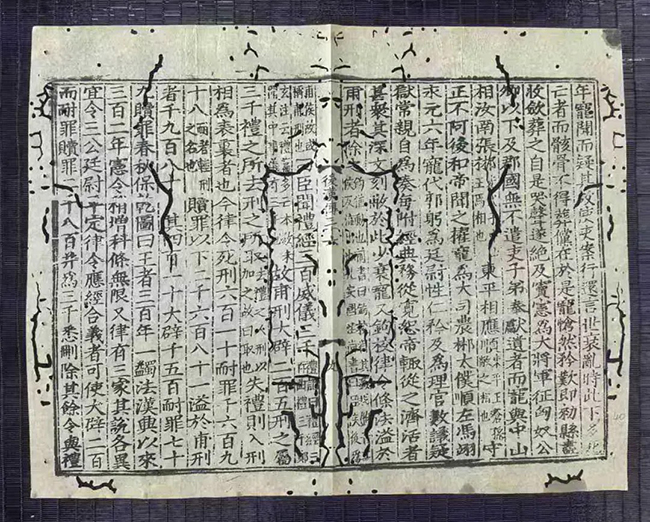 年寵聞而疑其故使吏案行還言世衰亂時此下多死
亡者而骸骨不得葬儻在於是寵愴然矜歎即勑縣盡
收斂葬之自是哭聲遂絕及竇憲為大將軍征匈奴公
卿以下及郡國無不遣吏子弟奉獻遺者而寵與中山
相汝南張郴東平相應順守
正不阿後和帝聞之擢寵為大司農郴太僕順左馮翊
永元六年寵代郭躬為廷尉性仁矜及為理官數議疑
獄常親自為奏每附經典務從寬恕帝輒從之濟活者
甚衆其深文刻敝於此少衰寵又鉤校律令條法溢於
甫刑者除
曰臣聞禮經三百威儀三千
故甫刑大辟二百五刑之屬
三千禮之所去刑之所取失禮則入刑
相為表裏者也今律令死刑六百一十耐罪千六百九
十八耐者輕刑之名也贖罪以下二千六百八十一溢於甫刑
者千九百八十九其四百一十大辟千五百耐罪七十
九贖罪春秋保乾圖曰王者三百年一蠲法漢興以來
三百二年憲令稍增科條無限又律有三家其說各異
宜令三公廷尉平定律令應經合義者可使大辟二百
而耐罪贖罪二千八百并為三千悉刪除其餘令與禮